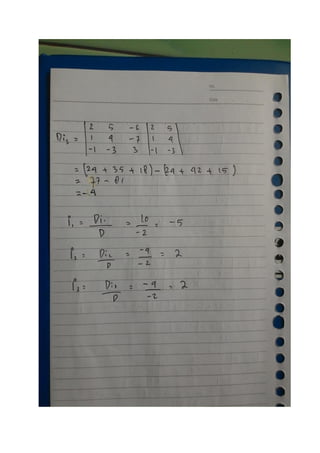 No.
Date
Di₃ = | 2 5 -6 | 2 5 |
| 1 4 -7 | 1 4 |
| -1 -3 3 | -1 -3 |
= (24 + 35 + 18) - (24 + 42 + 15)
= 77 - 81
= -4
I₁ = Di₁ / D = 10 / -2 = -5
I₂ = Di₂ / D = -4 / -2 = 2
I₃ = Di₃ / D = -4 / -2 = 2